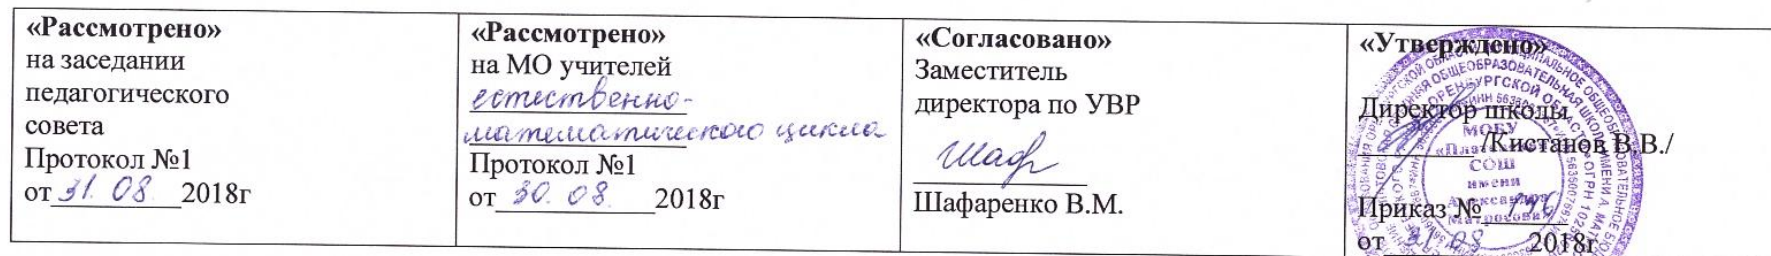 «Рассмотрено»
на заседании
педагогического
совета
Протокол №1
от 31.08. 2018г
«Рассмотрено»
на МО учителей
естественно-
математического цикла
Протокол №1
от 30.08. 2018г
«Согласовано»
Заместитель
директора по УВР
Шаф
Шафаренко В.М.
«Утверждено»
Директор школы
/Кистанов В.В./
Приказ №
от 31.08 2018г
МОБУ
СОШ
имени
Александра
Матросова